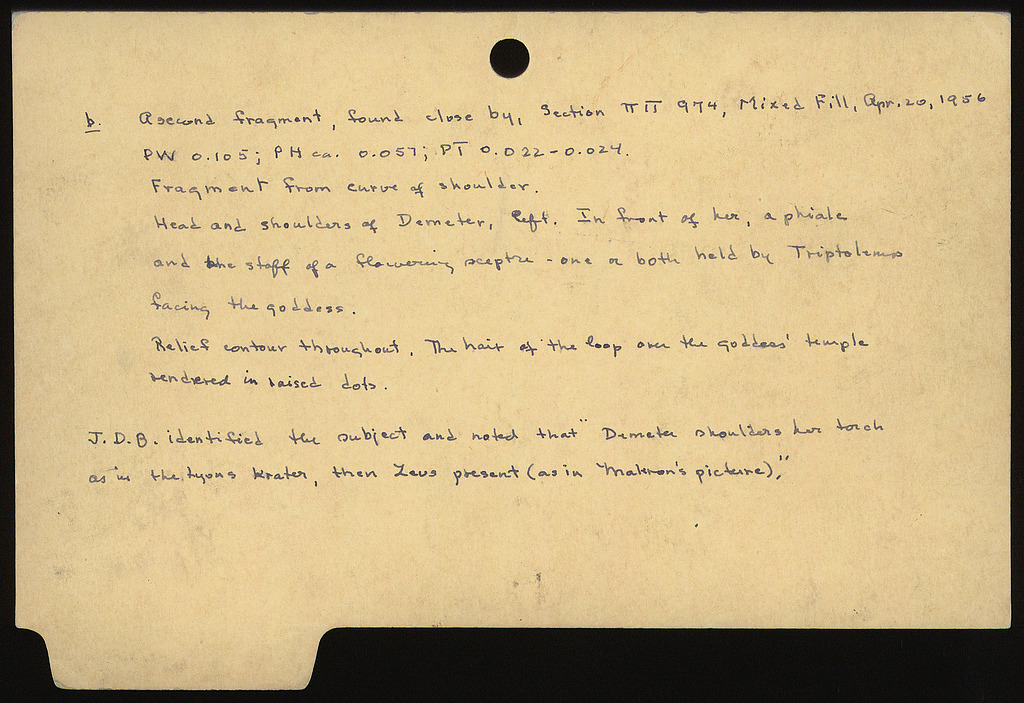 b. A second fragment, found close by, Section ΠΠ 974, Mixed Fill, Apr. 20, 1956
PW 0.105; PH ca. 0.057; PT 0.022-0.024.
Fragment from curve of shoulder.
Head and shoulders of Demeter, left. In front of her, a phiale
and the staff of a flowering sceptre - one or both held by Triptolemos
facing the goddess.
Relief contour throughout. The hair of the loop over the goddess' temple
rendered in raised dots.
J.D.B. identified the subject and noted that "Demeter shoulders her torch
as in the Lyons krater, then Zeus present (as in Makron's picture)."